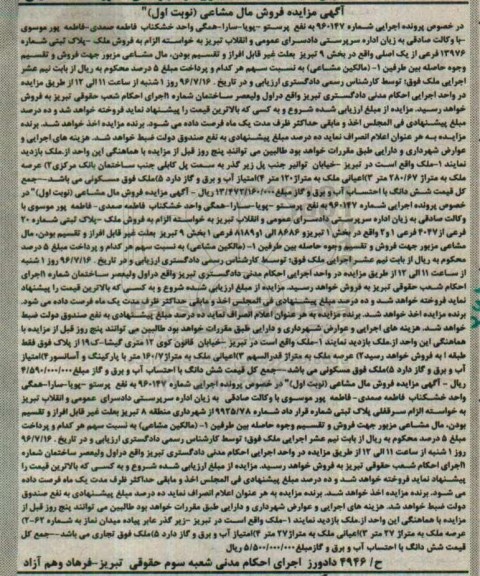 آگهی مزایده فروش مال مشاعی (نوبت اول)"
در خصوص پرونده اجرایی شماره ۹۶۰۱۴۷ به نفع پرستو -پویا-سارا-همگی واحد خشکناب فاطمه صمدی-فاطمه پور موسوی
-با وکالت صادقی به زیان اداره سرپرستی دادسرای عمومی و انقلاب تبریز به خواسته الزام به فروش ملک -پلاک ثبتی شماره
۱۳۹۷۶ فرعی از یک اصلی واقع در بخش ۹ تبریز بعلت غیر قابل افراز و تقسیم بودن، مال مشاعی مزبور جهت فروش و تقسیم
وجوه حاصله بین طرفین ۱- (مالکین مشاعی) به نسبت سهم هر کدام و پرداخت مبلغ ۵ درصد محکوم به ریال از بابت نیم عشر
اجرایی ملک فوق؛ توسط کارشناس رسمی دادگستری ارزیابی و در تاریخ . ۹۶/۷/۱۶ روز ۱ شنبه از ساعت ۱۱ الی ۱۲ از طریق مزایده
در واحد اجرایی احکام مدنی دادگستری تبریز واقع دراول ولیعصر ساختمان شماره ۱اجرای احکام شعب حقوقی تبریز به فروش
خواهد رسید. مزایده از مبلغ ارزیابی شده شروع و به کسی که بالاترین قیمت را پیشنهاد نماید فروخته خواهد شد و ده درصد
مبلغ پیشنهادی فی المجلس اخذ و مابقی حداکثر ظرف مدت یک ماه فرصت داده می شود. برنده مزایده اخذ خواهد شد. برنده
مزایده به هر عنوان اعلام انصراف نماید ده درصد مبلغ پیشنهادی به تفع صندوق دولت ضبط خواهد شد. هزینه های اجرایی و
عوارض شهرداری و دارایی طبق مقررات خواهد بود طالبین می توانند پنج روز قبل از مزایده با هماهنگی این واحد از ملک بازدید
نمایند ۱-ملک واقع است در تبریز -خیابان توانیر جنب پل زیر گذر به سمت پل کابلی جنب ساختمان بانک مرکزی۲) عرصه
ملک به متراژ ۲۸۰/۶۷ متر ۳)اعیانی ملک به متراژ۱۲۰ متر ۴)امتیاز آب و برق و گاز دارد ۵)ملک فوق مسکونی می باشد.--جمع
کل قیمت شش دانگ با احتساب آب و برق و گاز مبلغ ۱۳/۴۷۲/۱۶۰/۰۰۰ ریال - آگهی مزایده فروش مال مشاعی (نوبت اول)" در
خصوص پرونده اجرایی شماره ۹۶۰۱۴۷ به نفع پرستو -پویا-سارا-همگی واحد خشکناب فاطمه صمدی - فاطمه پور موسوی با
وکالت صادقی به زیان اداره سرپرستی دادسرای عمومی و انقلاب تبریز به خواسته الزام به فروش ملک -پلاک ثبتی شماره ۲۰
محکوم به ریال از بابت نیم عشر اجرایی ملک فوق؛ توسط کارشناس رسمی دادگستری ارزیابی و در تاریخ . ۹۶/۷/۱۶ روز ۱ شنبه
از ساعت ۱۱ الی ۱۲ از طریق مزایده در واحد اجرایی احکام مدنی دادگستری تبریز واقع دراول ولیعصر ساختمان شماره ۱اجرای
احکام شعب حقوقی تبریز به فروش خواهد رسید. مزایده از مبلغ ارزیابی شده شروع و به کسی که بالاترین قیمت را پیشنهاد
نماید فروخته خواهد شد و ده درصد مبلغ پیشنهادی فی المجلس اخذ و مابقی حداکثر ظرف مدت یک ماه فرصت داده می شود.
برنده مزایده اخذ خواهد شد. برنده مزایده به هر عنوان اعلام انصراف نماید ده درصد مبلغ پیشنهادی به تفع صندوق دولت ضبط
خواهد شد. هزینه های اجرایی و عوارض شهرداری و دارایی طبق مقررات خواهد بود طالبین می توانند پنج روز قبل از مزایده با
هماهنگی این واحد از ملک بازدید نمایند ۱-ملک واقع است در تبریز -خیابان قانون کوی ۱۲ متری گیشا-ک۱۹ از پلاک فوق فقط
طبقه ا به فروش خواهد رسید۲) عرصه ملک به متراژ قدرالسهم ۳)اعیانی ملک به متراژ ۱۶۰/۷ متر با پارکینگ و آسانسور۴)امتیاز
آب و برق و گاز دارد ۵)ملک فوق مسکونی می باشد --جمع کل قیمت شش دانگ با احتساب آب و برق و گاز مبلغ ۴/۵۹۰/۰۰۰/۰۰۰
ریال - آگهی مزایده فروش مال مشاعی (نوبت اول)" در خصوص پرونده اجرایی شماره ۹۶۰۱۴۷ به نفع پرستو -پویا-سارا-همگی
واحد خشکناب فاطمه صمدی-فاطمه پور موسوی با وکالت صادقی به زیان اداره سرپرستی دادسرای عمومی و انقلاب تبریز
به خواسته الزام سرقفلی پلاک ثبتی شماره قرار داد شماره ۹۹۲۵/۷۸ از شهرداری منطقه ۸ تبریز بعلت غیر قابل افراز و تقسیم
بودن، مال مشاعی مزبور جهت فروش و تقسیم وجوه حاصله بین طرفین ۱- (مالکین مشاعی) به نسبت سهم هر کدام و پرداخت
مبلغ ۵ درصد محکوم به ریال از بابت نیم عشر اجرایی ملک فوق؛ توسط کارشناس رسمی دادگستری ارزیابی و در تاریخ . ۹۶/۷/۱۶
روز ۱ شنبه از ساعت ۱۱ الی ۱۲ از طریق مزایده در واحد اجرایی احکام مدنی دادگستری تبریز واقع دراول ولیعصر ساختمان شماره
۱اجرای احکام شعب حقوقی تبریز به فروش خواهد رسید. مزایده از مبلغ ارزیابی شده شروع و به کسی که بالاترین قیمت را
پیشنهاد نماید فروخته خواهد شد و ده درصد مبلغ پیشنهادی فی المجلس اخذ و مابقی حداکثر ظرف مدت یک ماه فرصت داده
می شود. برنده مزایده اخذ خواهد شد. برنده مزایده به هر عنوان اعلام انصراف نماید ده درصد مبلغ پیشنهادی به تفع صندوق
دولت ضبط خواهد شد. هزینه های اجرایی و عوارض شهرداری و دارایی طبق مقررات خواهد بود طالبین می توانند پنج روز قبل از
مزایده با هماهنگی این واحد از ملک بازدید نمایند ۱-ملک واقع است در تبریز -زیر گذر عابر پیاده میدان نماز به شماره ۶۲-۲)
عرصه ملک به متراژ ۲۷ متر ۳)اعیانی ملک به متراژ ۲۷ متر ۴)امتیاز آب و برق و گاز دارد ۵)ملک فوق تجاری می باشد--جمع کل
قیمت شش دانگ با احتساب آب و برق و گازمبلغ ۵/۵۰۰/۰۰۰/۰۰۰ ریال
ح/ ۴۹۴۶ دادورز اجرای احکام مدنی شعبه سوم حقوقی تبریز-فرهاد وهم آزاد